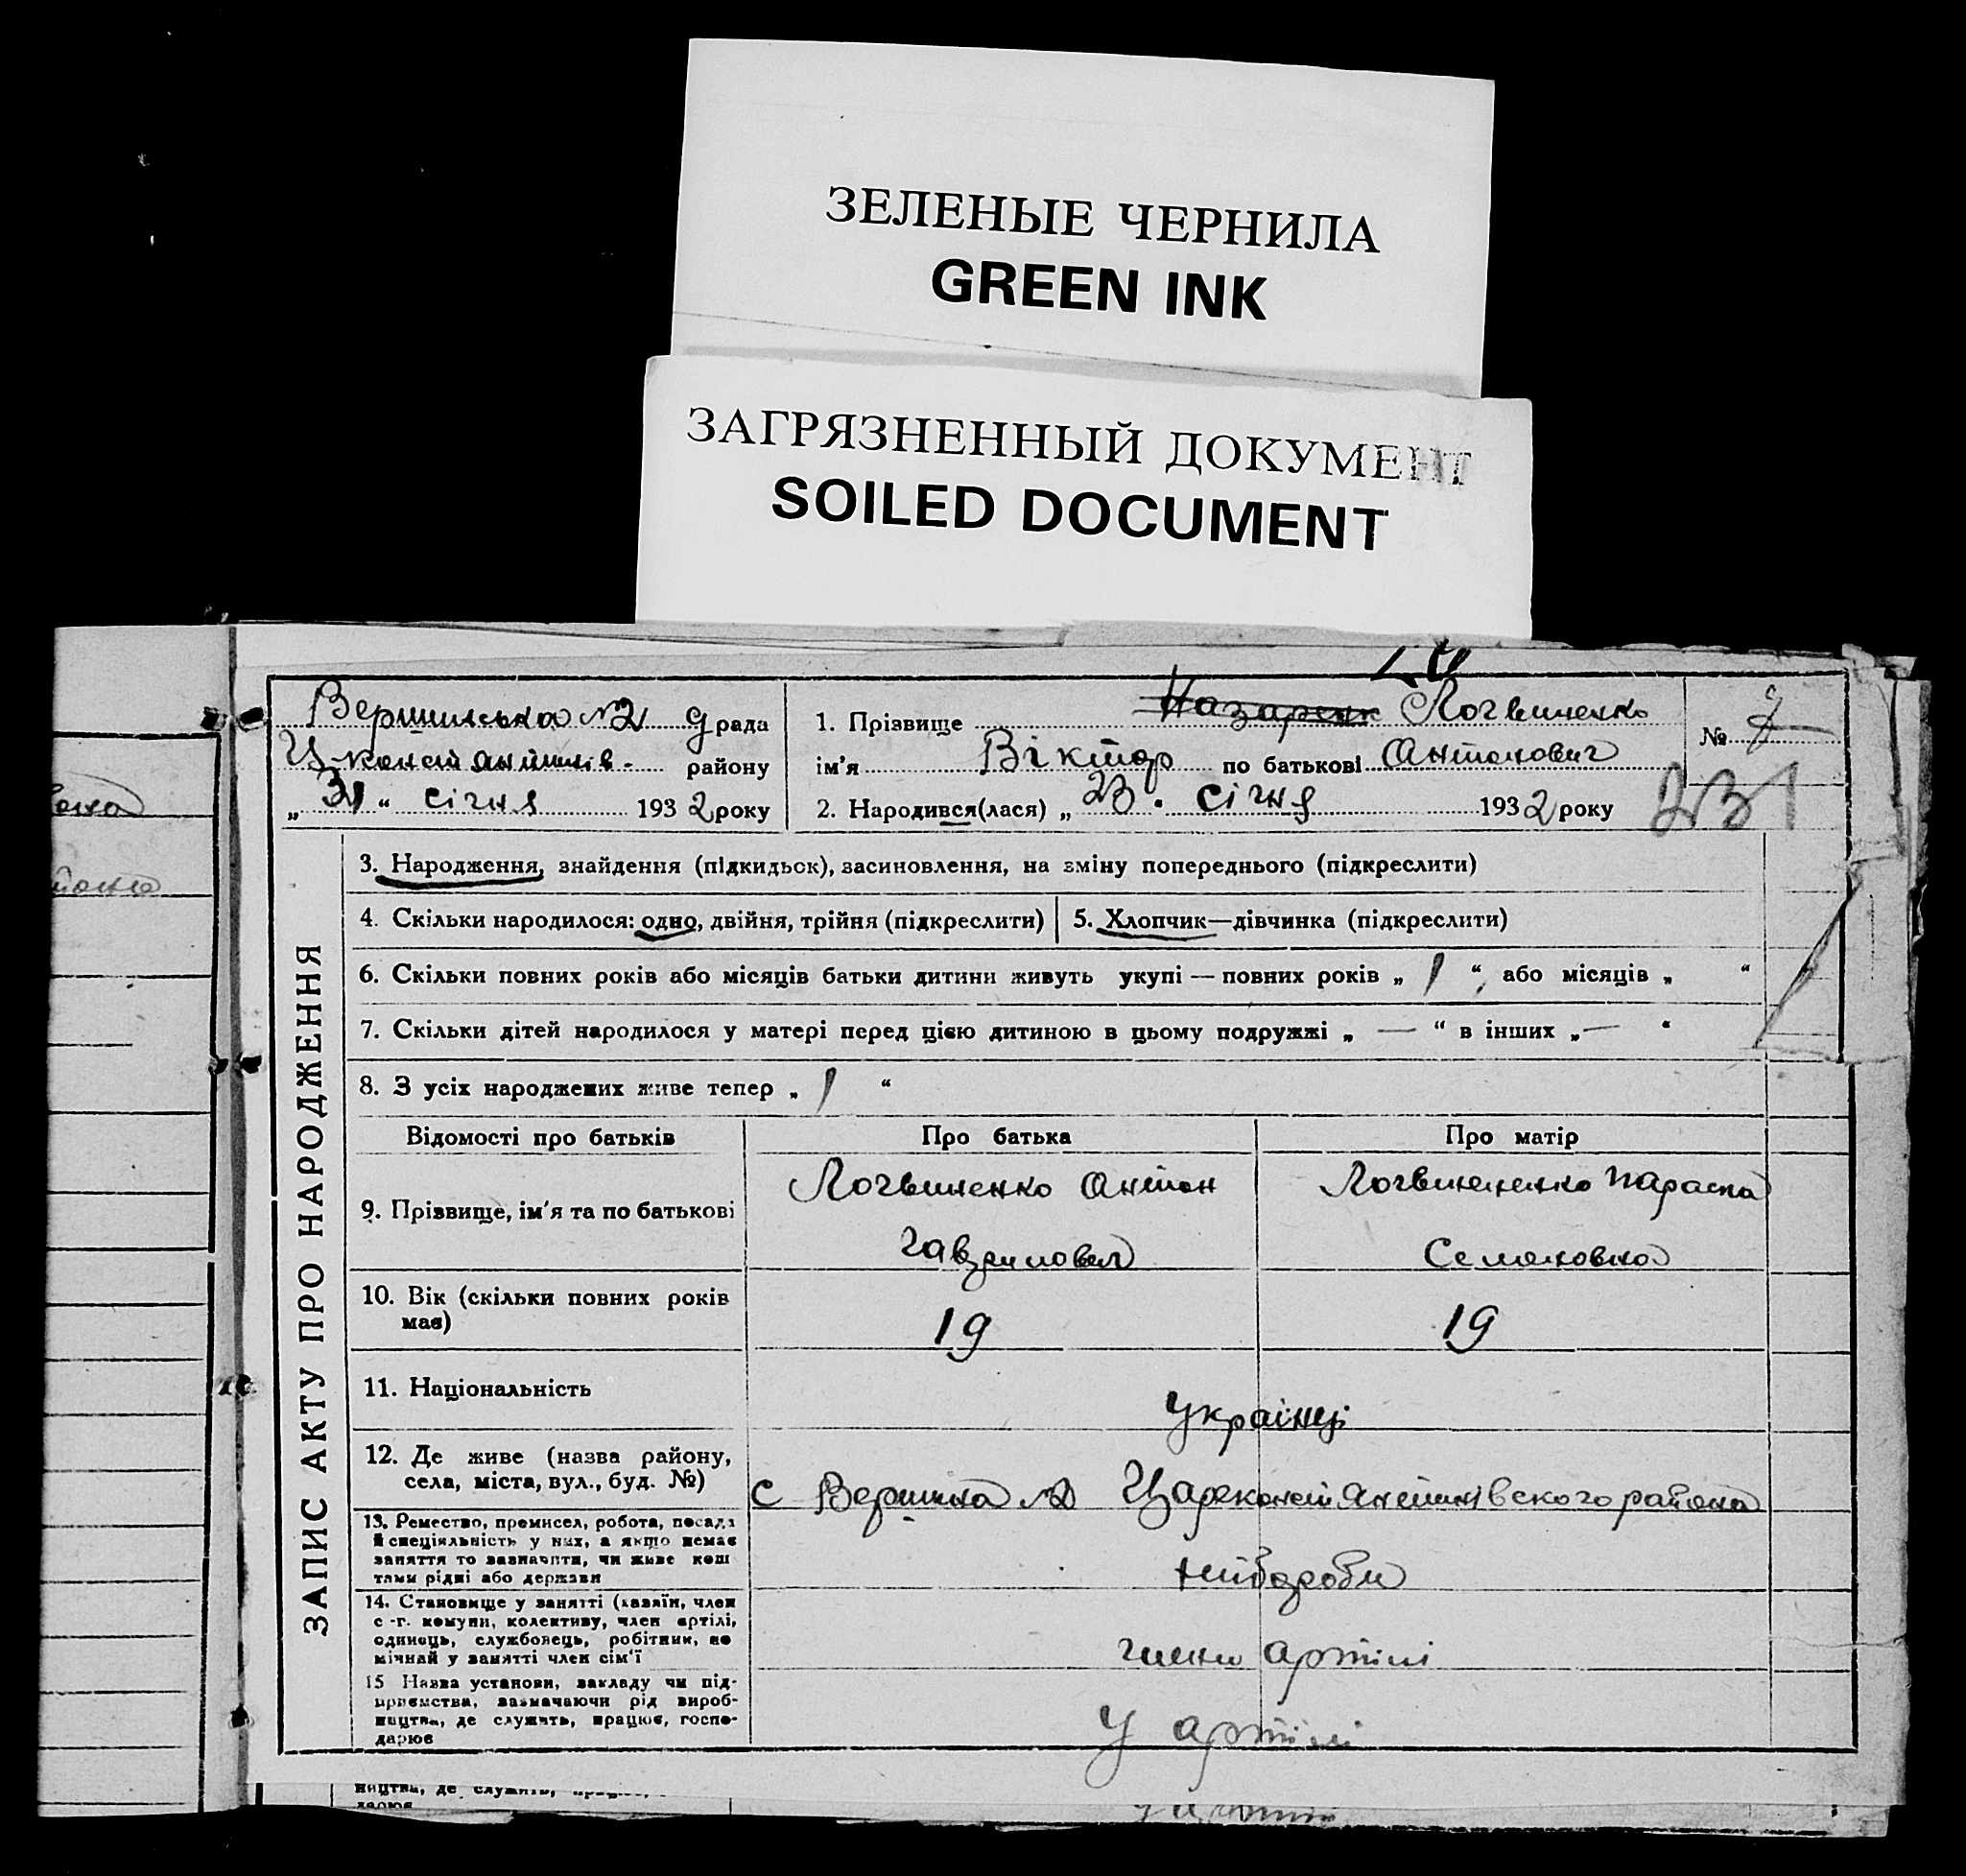 ЗЕЛЕНЫЕ ЧЕРНИЛА
GREEN INK
ЗАГРЯЗНЕННЫЙ ДОКУМЕНТ
SOILED DOCUMENT
Вершинська №2 рада
Ц-константинів. району
„ 31 “ січня 1932 року
1. Прізвище Назаренк Логвиненко
ім’я Віктор по батькові Антонович
2. Народився(лася) „ 23 . січня 1932 року
№ 7
231
ЗАПИС АКТУ ПРО НАРОДЖЕННЯ
3. Народження, знайдення (підкидьок), засиновлення, на зміну попереднього (підкреслити)
4. Скільки народилося: одно, двійня, трійня (підкреслити)
5. Хлопчик—дівчинка (підкреслити)
6. Скільки повних років або місяців батьки дитини живуть укупі — повних років „ 1 “, або місяців „ “
7. Скільки дітей народилося у матері перед цією дитиною в цьому подружжі „ — “ в інших „ — “
8. З усіх народжених живе тепер „ 1 “
Відомості про батьків
Про батька
Про матір
9. Прізвище, ім’я та по батькові
Логвиненко Антон
Гаврилович
Логвиненко Параска
Семеновна
10. Вік (скільки повних років
має)
19
19
11. Національність
Українці
12. Де живе (назва району,
села, міста, вул., буд. №)
с Вершина №2 Цареконстантинівского района
13. Ремество, промисел, робота, посада
й спеціяльність у них, а якщо немає
заняття то зазначити, чи живе кош
тами рідні або держави
хлібороби
14. Становище у занятті (хазяїн, член
с.-г. комуни, колективу, член артілі,
одинець, службовець, робітник, по
мічний у занятті член сім’ї
члени артілі
15 Назва установи, закладу чи під-
приємства, зазначаючи рід вироб-
ництва, де служить, працює, госпо-
дарює
У артілі
ництва, де служить,
дарює